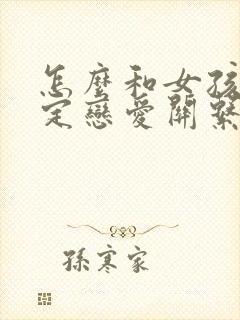 怎麼和女孩
定戀愛關繫
孫寒家